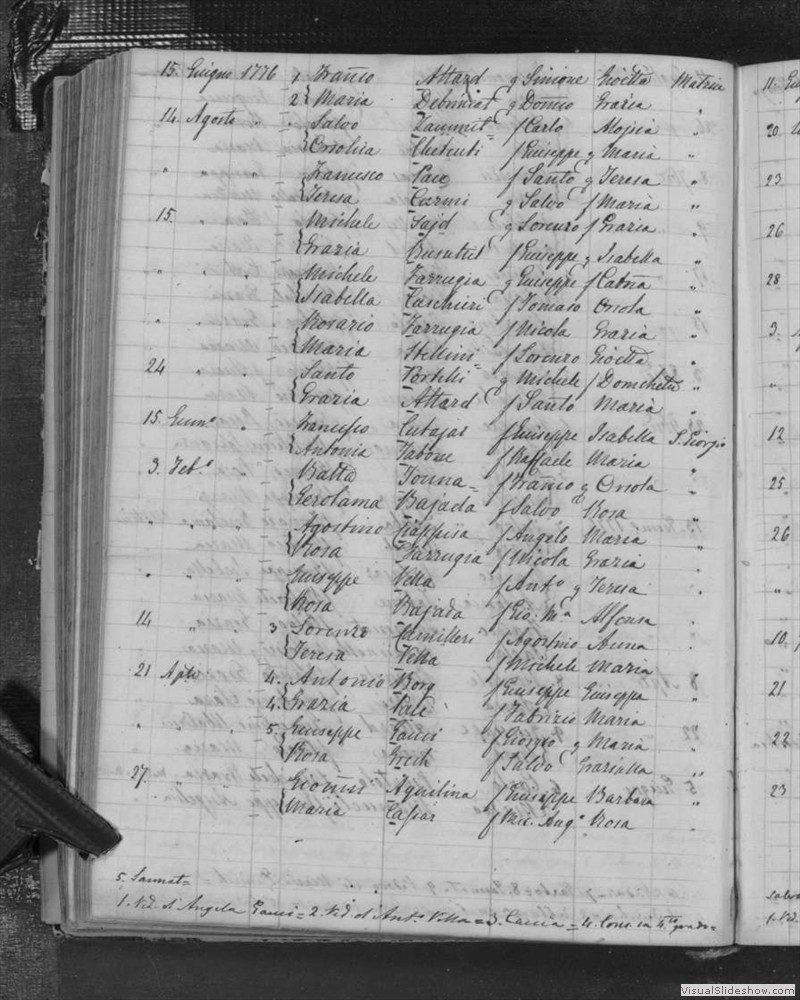 15. Giugno 1776 1 Franco Attard q Simione Gioetta Matrice
2 Maria q Domco Grazia "
14. Agosto " " Salvo Zammit f Carlo "
Orsolica f Giuseppe q Maria "
" " " Francesco Pace f Santo q Teresa "
Teresa Curmi q Salvo f Maria "
15. " " Michele Said q Lorenzo f Grazia "
Grazia Busuttil f Giuseppe q Isabella "
" " " Michele Farrugia q Giuseppe f Catna "
Isabella Cuschieri f Tomaso Orsola "
" " " Rosario Farrugia f Nicola Grazia "
Maria Stellini f Lorenzo Gioetta "
24 " " Santo Portelli q Michele f "
Grazia Attard f Santo Maria "
15. Genno " Francesco Cutajar f Giuseppe Isabella S. Giorgio
Antonia Tabone f Raffaele Maria "
3. Feb.o " Batta Touna= f Franco q Orsola "
Gerolama Bajada f Salvo Rosa "
" " " Agostino f Angelo Maria "
Rosa Farrugia f Nicola Grazia "
" " " Giuseppe Vella f Anto q Teresa "
Rosa Bajada f Gio. Ma Alfonsa
14 " " 3 Lorenzo Camilleri f Agostino Anna "
Teresa Vella f Michele Maria
21 Aple " 4. Antonio Borg f Giuseppe Giuseppa "
4. Grazia Pace f Fabrizio Maria
" " " 5. Giuseppe Gauci f Giorgio q Maria "
Rosa Grech f Salvo Graziulla "
27. " " Gioññi Aquilina f Giuseppe Barbara "
Maria Caspar f Mic. Ango Rosa "
5. Sannat=
1. Vid. d'Angela Gauci = 2. Vid. d'Anto Vella = 3. Caccia = 4. Cons. in 4to grado=
11.
20
23
26
28
3.
12
25
26
10.
21
22
23
VisualSlideshow.com